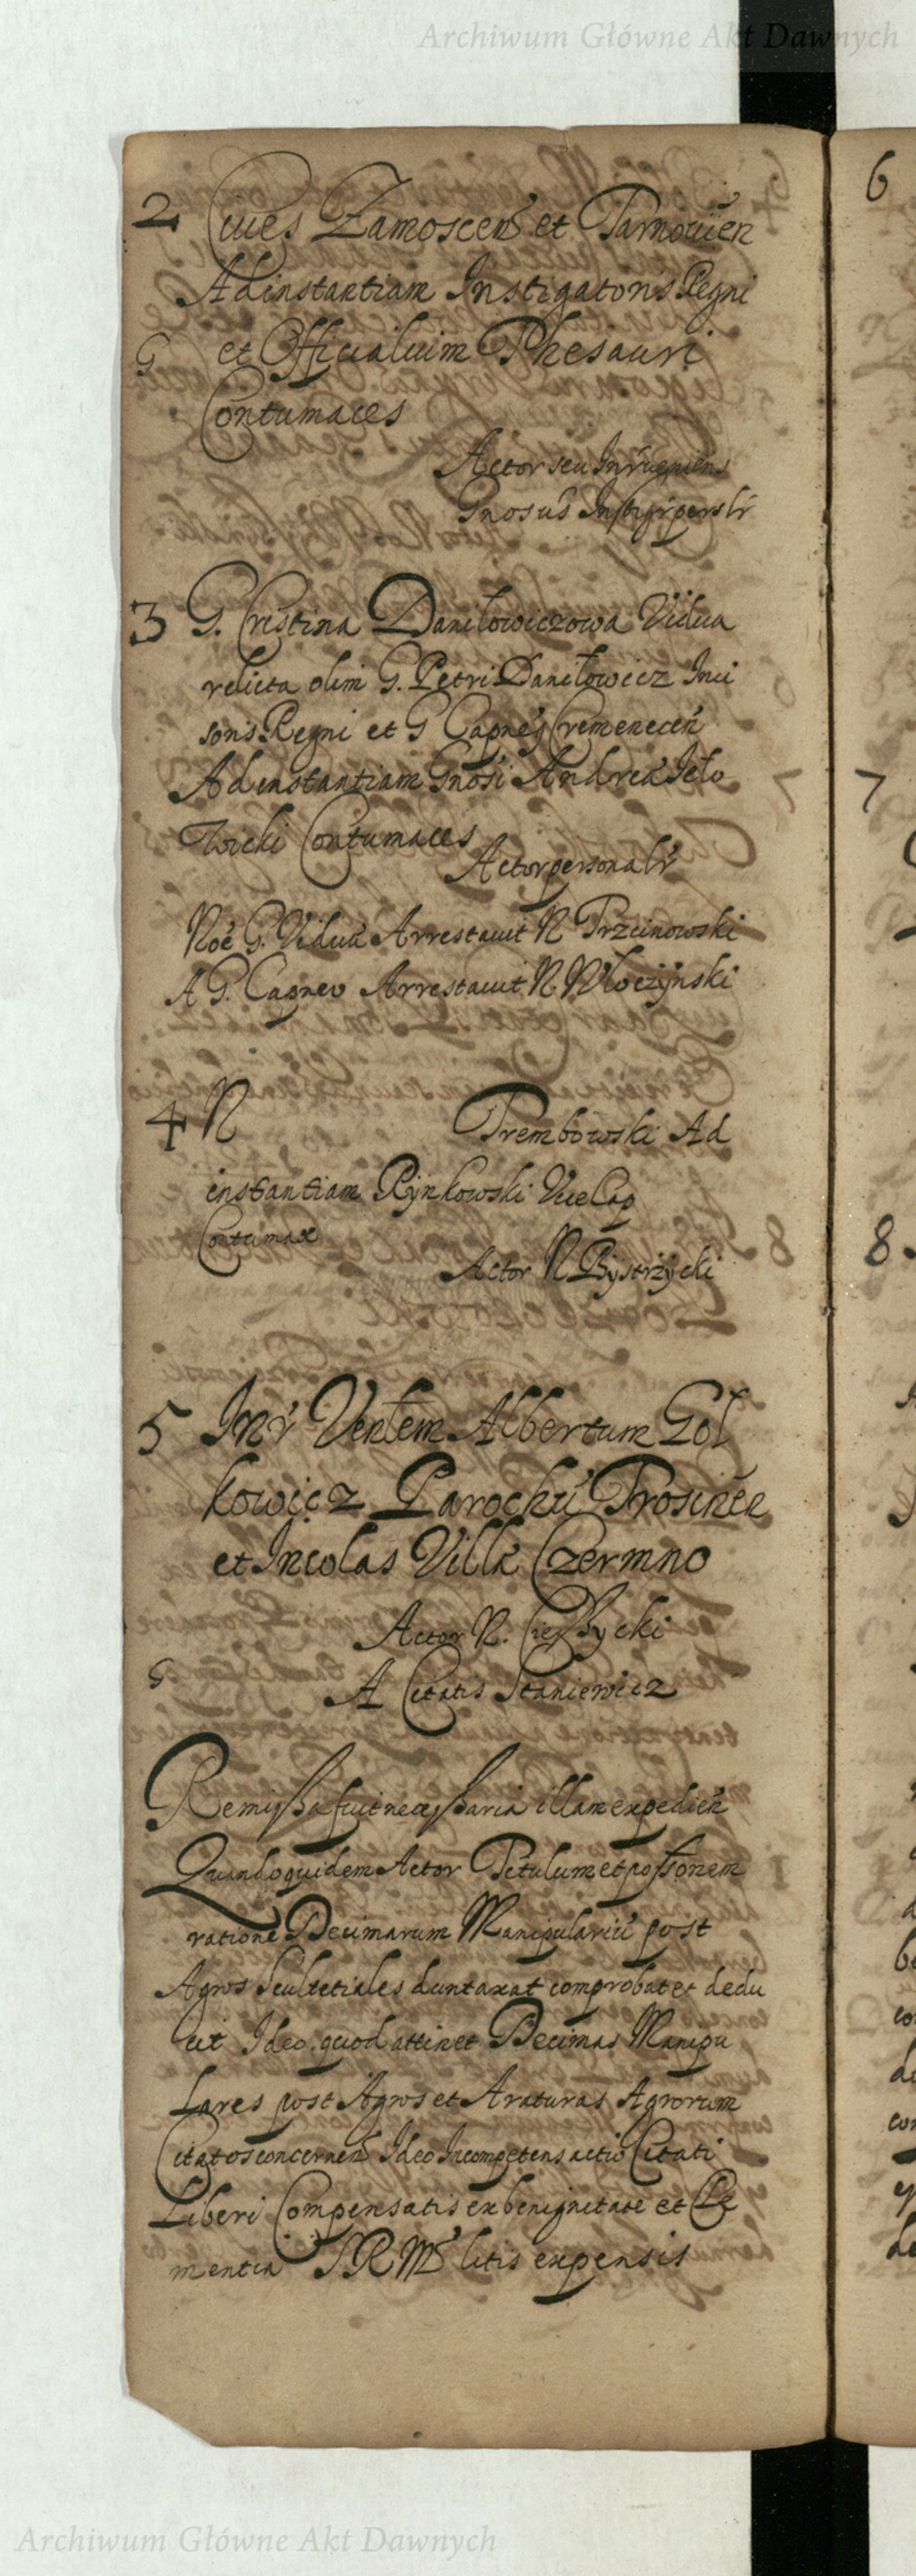 Archiwum Główne Akt Dawnych
2 Ciues Zamoscen et Tarnouien
Ad instantiam Instigatoris Regni
G et Officialium Thesauri
Contumaces
Actor seu Inrueniens
Gnosus
3 G. Cristina Daniłowiczowa Vidua
relicta olim G. Petri Daniłowicz Inci
soris Regni et G Capnei Cremenecen
Ad instantiam Gnosi Andreae Jeło
wicki Contumaces
Actor personalr
Noe G. Viduae Arrestauit N Trzcinowski
A G. Capneo Arrestauit N
4 N Trembowski Ad
instantiam Rynkowski ViceCap
Contumax
Actor N Bystrzycki
5 Inr Venlem Albertum Gol
kowicz Parochu Trosinen
et Incolas Villae Czermno
Actor N.
G A Citatis Staniewicz
Remissa fuit necessaria illam expedien
Quandoquidem Actor Petulum et possonem
ratione Decimarum Manipulariu post
Agros Scultetiales duntaxat comprobat et dedu
cit Ideo quod attinet Decimas Manipu
Lares post Agros et Araturas Agrorum
Citatos concernen Ideo Incompetens actio Citati
Liberi Compensatis ex benignitate et Cle
mentia SRMs litis expensis
6
7
8
Archiwum Główne Akt Dawnych